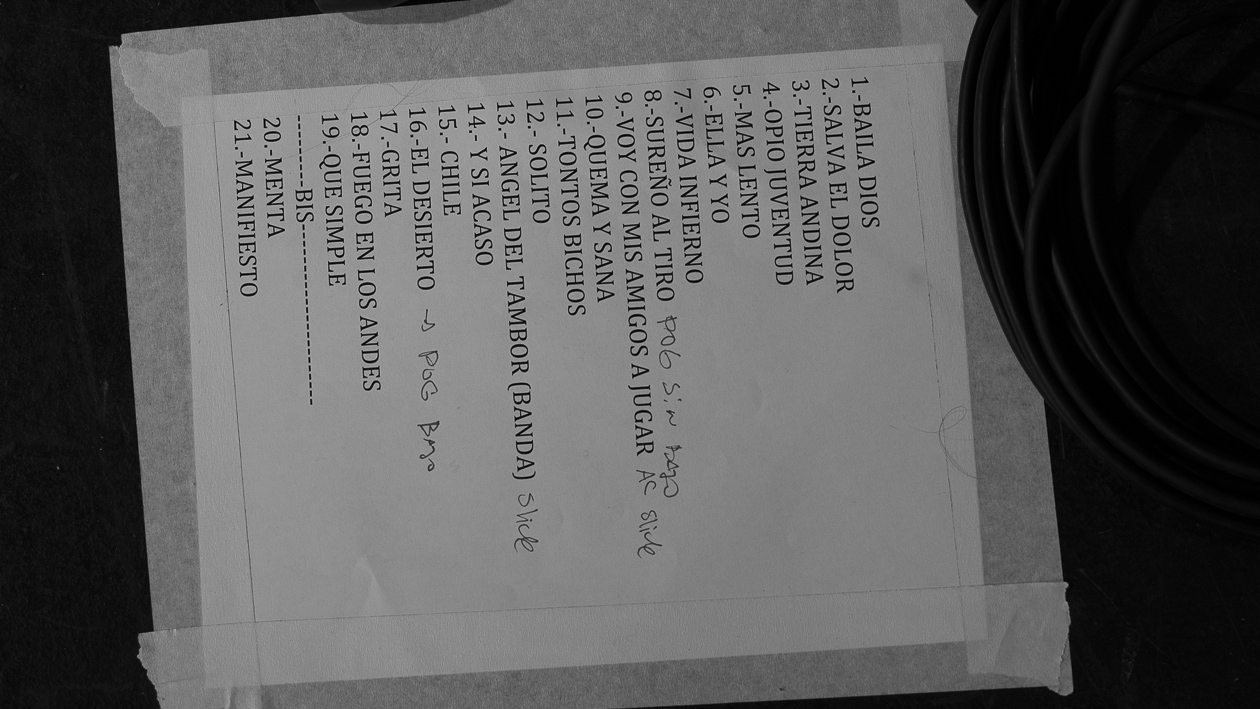 1.-BAILA DIOS
2.-SALVA EL DOLOR
3.-TIERRA ANDINA
4.-OPIO JUVENTUD
5.-MAS LENTO
6.-ELLA Y YO
7.-VIDA INFIERNO
8.-SUREÑO AL TIRO POG Sin BAJO
9.-VOY CON MIS AMIGOS A JUGAR AC Slide
10.-QUEMA Y SANA
11.-TONTOS BICHOS
12.- SOLITO
13.- ANGEL DEL TAMBOR (BANDA) Slide
14.- Y SI ACASO
15.- CHILE
16.-EL DESIERTO → POG BAJO
17.-GRITA
18.-FUEGO EN LOS ANDES
19.-QUE SIMPLE
--------BIS---------------------
20.-MENTA
21.-MANIFIESTO